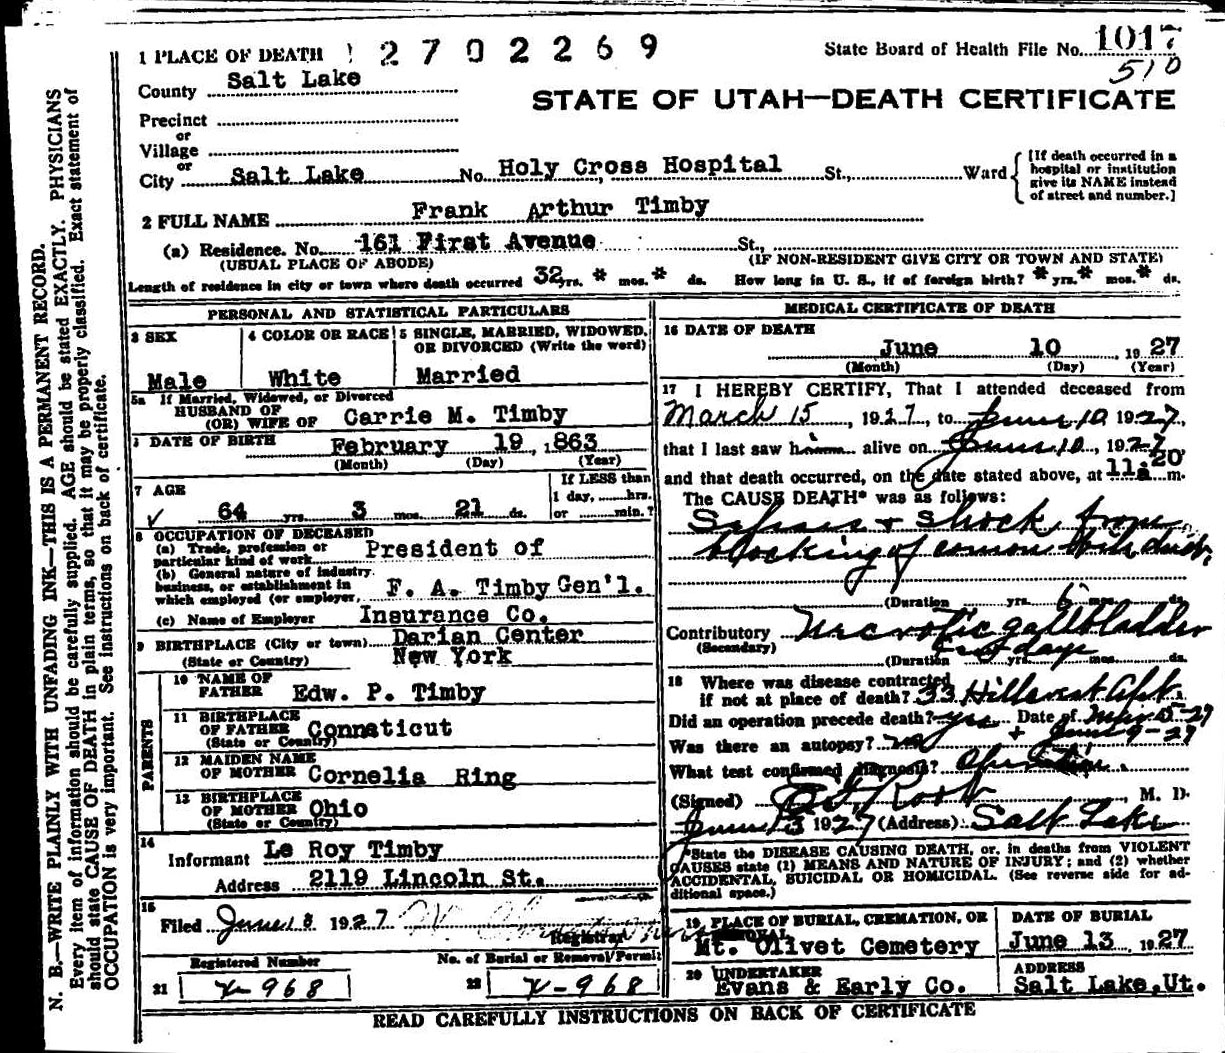 1 PLACE OF DEATH 2702269
State Board of Health File No. 1017
510
County Salt Lake
STATE OF UTAH—DEATH CERTIFICATE
Precinct
or
Village
or
City Salt Lake No. Holy Cross Hospital St., Ward
[If death occurred in a hospital or institution give its NAME instead of street and number.]
2 FULL NAME Frank Arthur Timby
(a) Residence. No. 161 First Avenue St.,
(USUAL PLACE OF ABODE) (IF NON-RESIDENT GIVE CITY OR TOWN AND STATE)
Length of residence in city or town where death occurred 32 yrs. * mos. * ds. How long in U. S., if of foreign birth? * yrs. * mos. * ds.
PERSONAL AND STATISTICAL PARTICULARS
3 SEX 4 COLOR OR RACE 5 SINGLE, MARRIED, WIDOWED, OR DIVORCED (Write the word)
Male White Married
5a If Married, Widowed, or Divorced
HUSBAND OF
(OR) WIFE OF Carrie M. Timby
DATE OF BIRTH February 19 ,863
(Month) (Day) (Year)
7 AGE If LESS than
1 day, hrs.
64 yrs. 3 mos. 21 ds. or min.?
8 OCCUPATION OF DECEASED
(a) Trade, profession or
particular kind of work President of
(b) General nature of industry
business, or establishment in
which employed (or employer, F. A. Timby Gen'l.
(c) Name of Employer Insurance Co.
9 BIRTHPLACE (City or town) Darian Center
(State or Country) New York
PARENTS
10 NAME OF
FATHER Edw. P. Timby
11 BIRTHPLACE
OF FATHER Connaticut
(State or Country)
12 MAIDEN NAME
OF MOTHER Cornelia Ring
13 BIRTHPLACE
OF MOTHER Ohio
(State or Country)
14
Informant Le Roy Timby
Address 2119 Lincoln St.
15
Filed June 13 1927
Registrar
Registered Number No. of Burial or Removal Permit
21 X-968 22 X-968
MEDICAL CERTIFICATE OF DEATH
16 DATE OF DEATH
June 10 , 1927
(Month) (Day) (Year)
17 I HEREBY CERTIFY, That I attended deceased from
March 15, 1927, to June 10 1927,
that I last saw him alive on June 10, 1927
and that death occurred, on the date stated above, at 11:20 a m.
The CAUSE DEATH* was as follows:
Sepsis + shock from
blocking of common bile duct,
(Duration yrs. 6 mos. ds.
Contributory Necrotic gallbladder
(Secondary)
days
(Duration yrs. mos. ds.
18 Where was disease contracted
if not at place of death? 33 Hillcrest Apt.
Did an operation precede death? yes Date of Mar 15-27
+ June 9-27
Was there an autopsy? no
What test confirmed diagnosis? Operation.
(Signed) M. D.
June 13 1927 (Address) Salt Lake
*State the DISEASE CAUSING DEATH, or, in deaths from VIOLENT
CAUSES state (1) MEANS AND NATURE OF INJURY; and (2) whether
ACCIDENTAL, SUICIDAL OR HOMICIDAL. (See reverse side for ad-
ditional space.)
19 PLACE OF BURIAL, CREMATION, OR REMOVAL DATE OF BURIAL
Mt. Olivet Cemetery June 13 , 1927
20 UNDERTAKER ADDRESS
Evans & Early Co. Salt Lake, Ut.
READ CAREFULLY INSTRUCTIONS ON BACK OF CERTIFICATE
N. B.—WRITE PLAINLY WITH UNFADING INK—THIS IS A PERMANENT RECORD.
Every item of information should be carefully supplied. AGE should be stated EXACTLY. PHYSICIANS
should state CAUSE OF DEATH in plain terms, so that it may be properly classified. Exact statement of
OCCUPATION is very important. See instructions on back of certificate.